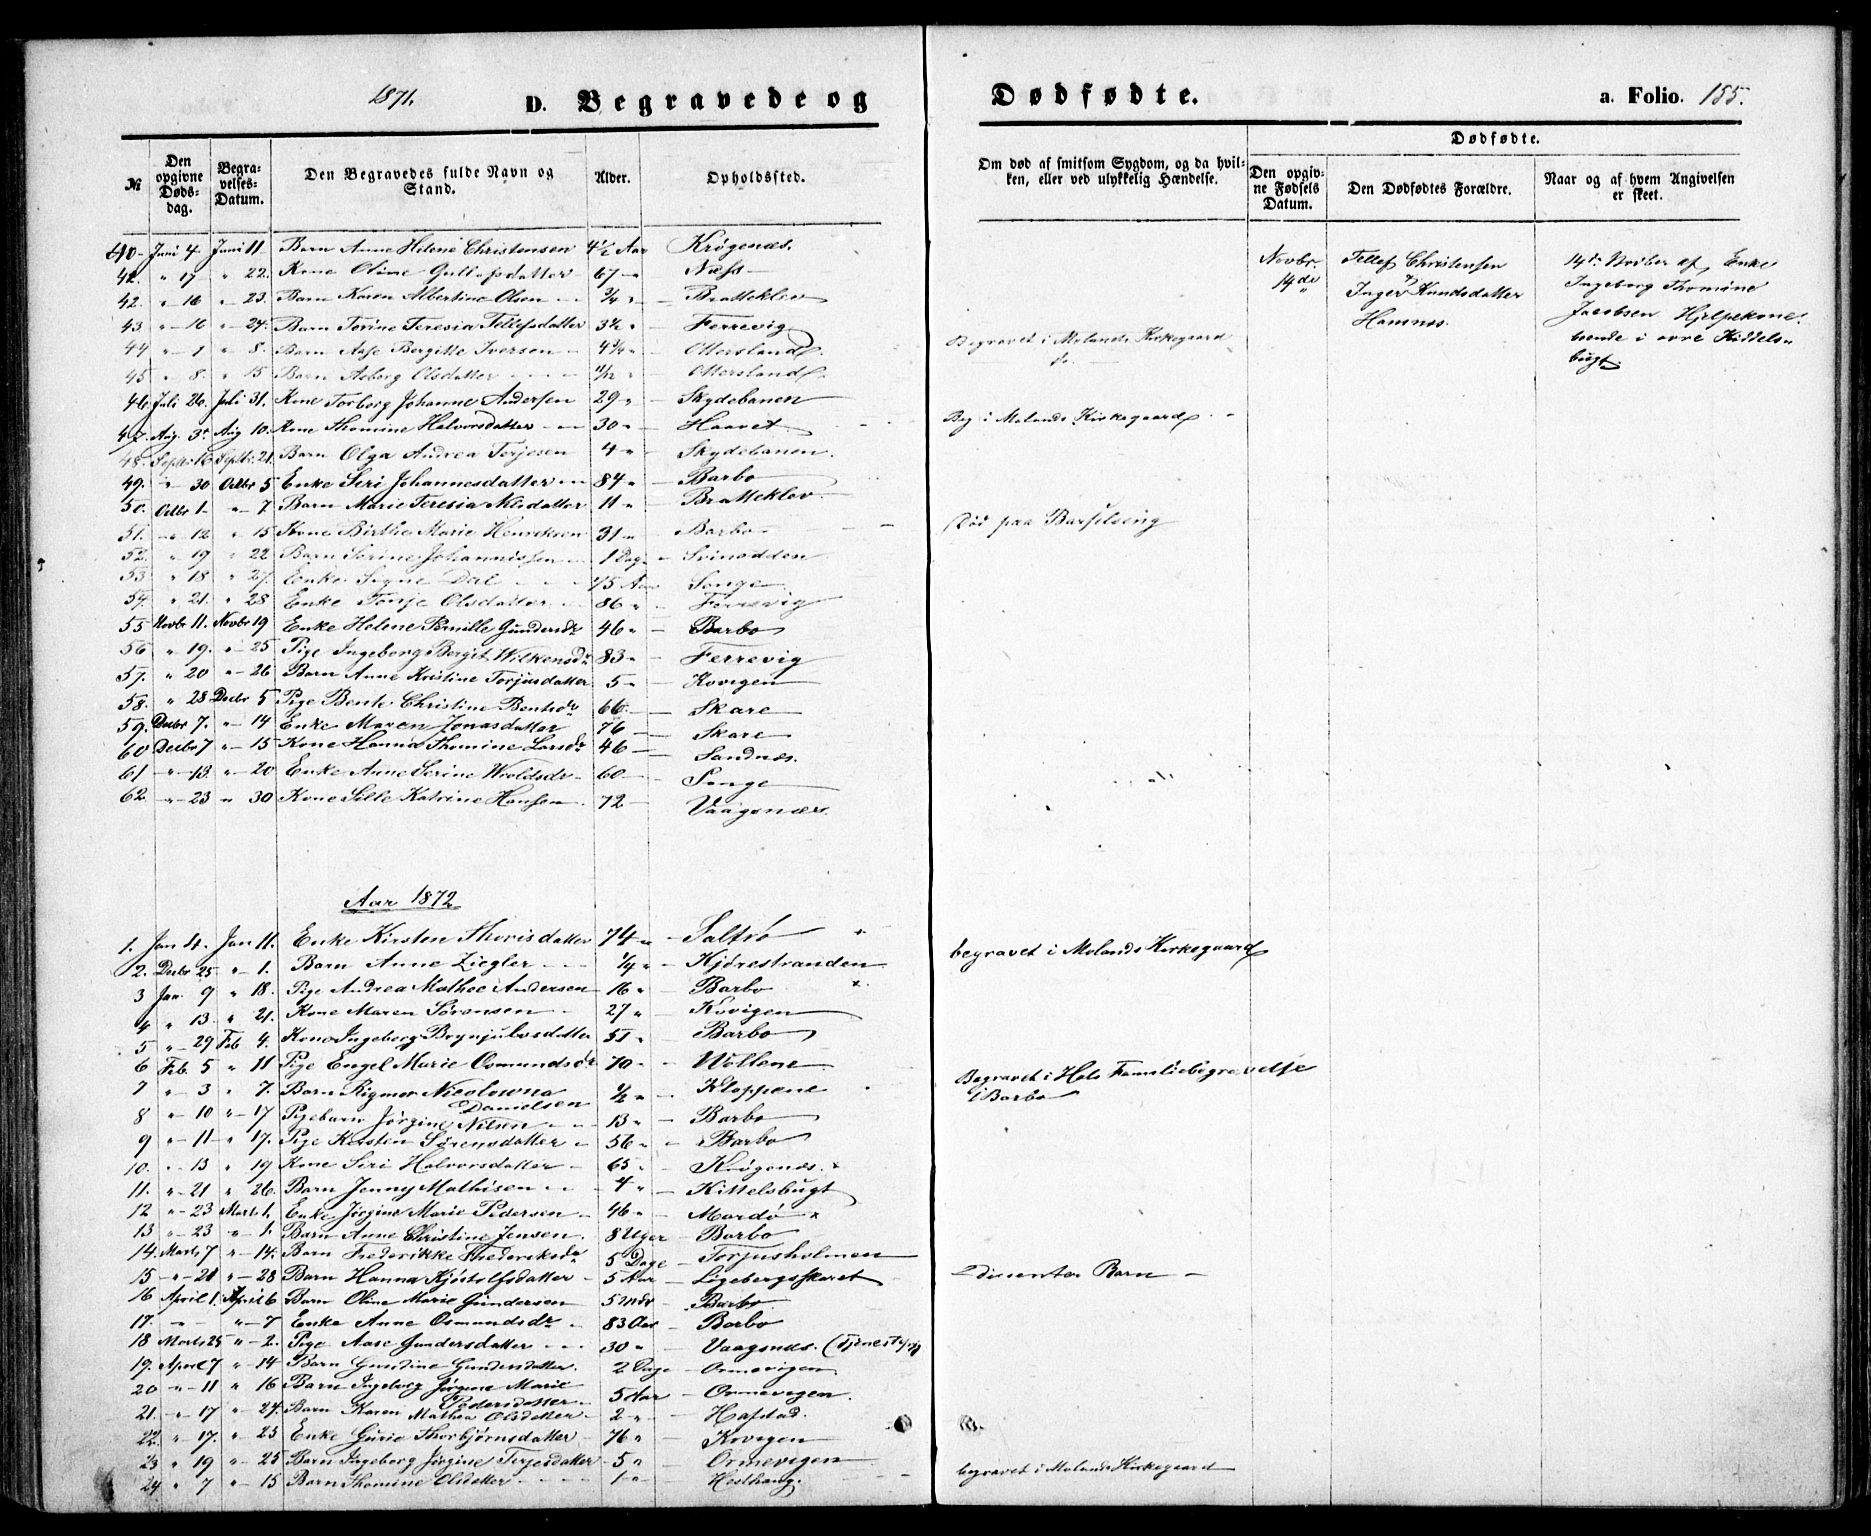 1871.
D. Begravede og
Dødfødte.
a. Folio. 155.
№
Den opgivne Døds-dag.
Begra-velses-Datum.
Den Begravedes fulde Navn og Stand.
Alder.
Opholdssted.
Om død af smitsom Sygdom, og da hvil-ken, eller ved ulykkelig Hændelse.
Dødfødte.
Den opgiv-ne Fødsels Datum.
Den Dødfødtes Forældre.
Naar og af hvem Angivelsen er skeet.
40 Juni 4 Juni 11 Barn Anne Helene Christensen 4½ Aar Krøgenæs.
42. " 17 " 22. Kone Oline Gullefsdatter 67 " Næss
42. " 16 " 23. Barn Karen Albertine Olsen ¾ " Bratteklev
43 " 16 " 24. Barn Torine Teresia Tellefsdatter 3½ " Ferrevig
44 " 1 " 8. Barn Aase Bergitte Iversen 4¼ " Ottersland Begravet i Molands Kirkegaard
45 " 8. " 15 Barn Asborg Olsdatter 11/12 " Ottersland do
46. Juli 26. Juli 31. Kone Torborg Johanne Andersen 29 " Skydebanen
47. Aug. 3 Aug 10. Kone Thomine Halvorsdatter 30 " Haavet Beg i Molands Kirkegaard
48. Septr. 16 Septr. 21. Barn Olga Andrea Terjesen 4 " Skydebanen.
49. " 30 Octbr 5 Enke Siri Johannesdatter 84 " Barbo
50. Octbr 1. " 7 Barn Marie Teresia Nilsdatter 11 " Bratteklev
51. " 12 " 15 Kone Birthe Marie Henriksen 31 " Barbo Død paa Barselseng
52. " 19 " 22 Barn Serine Johannissen 1 Dag Svinodden
53 " 18 " 27. Enke Signe Dal 75 Aar Songe
54. " 21. " 28 Enke Tonje Olsdatter 86 " Ferrevig
55 Novbr 11. Novbr 19 Enke Helene Pernille Gundersdr 46 " Barbo
56 " 19. " 25 Pige Ingeborg Bergit Wilkensdr 83 " Ferrevig
57. " 20 " 26 Barn Anne Kristine Torjusdatter 5 " Kovigen
58. " 28 Decbr 5 Pige Bente Christine Bentsdr 66 Skare
59. Decbr 7. " 14 Enke Maren Jonasdatter 76 Skare
60 Decbr 7 " 15 Kone Hanna Thomine Larsdr 46 Sandnæs.
61 " 13. " 20 Enke Anne Serine Wroldsdr 60 Songe
62. " 23 " 30 Kone Sille Katrine Hansen 72 Vaagsnæs.
Novbr. 14de
Tellef Christensen & Inger Knudsdatter Hamnes.
14de Novber af Enke Ingeborg Thomine Jacobsen Hjelpekone boende i øvre Kiddels-bugt
Aar 1872
1. Jan 4. Jan 11. Enke Kirsten Thorisdatter 74 " Saltrø begravet i Molands Kirkegaard
2. Decbr 25 " 1. Barn Anne Ziegler ¼ " Kjørestranden
3 Jan. 9 " 18. Pige Andrea Mathee Andersen 16 " Barbo
4 " 13. " 21. Kone Maren Sørensen 27 " Kovigen
5 " 29 Feb 4. Kone Ingeborg Brynjulvsdatter 51 " Barbo
6 Feb. 5 " 11 Pige Engel Marie Osmundsdr 70 " Wollene
7 " 3 " 7. Barn Rigmor Nicolowna Danielsen ½ " Kloppene Begravet i Hels Familiebegravelse i Barbo
8 " 10 " 17 Pigebarn Jørgine Nilsen 13 " Barbo
9 " 11 " 17. Pige Kirsten Sørensdatter 56 " Barbo
10. " 13 " 19 Kone Siri Halvorsdatter 65 " Krøgenæs.
11. " 21 " 26. Barn Jenny Mathisen 4 " Kittelsbugt
12 " 23 Marts 1. Enke Jørgine Marie Pedersen 46 " Mærdø
13 " 23 " 1. Barn Anne Christine Jensen. 8 Uger Barbo
14. Marts 7 " 14. Barn Frederikke Frederiksdr 5 Dage Torjusholmen
15 " 21 " 28 Barn Hanna Kjøstolfsdatter 5 Aar Ligebergsskaret Dissenter Barn
16 April 1. April 6 Barn Oline Marie Gundersen 5 Mdr Barbo
17. " " 7 Enke Anne Osmundsdr 83 Aar Barbo
18 Marts 25 " 2. Pige Aase Gundersdatter 30 " Vaagsnæs. (Tjenestpg)
19. April 7 " 14 Barn Gundine Gundersdatter. 2 Dage Ormevigen
20 " 11 " 16 Barn Ingeborg Jørgine Marie Pedersdatter 5 Aar Ormevigen
21. " 17 " 24. Barn Karen Mathea Olsdatter 2 " Hafstad.
22. " 17. " 23 Enke Gurie Thorbjørnsdatter 76 " Kovigen
23 " 19 " 25 Barn Ingeborg Jørgine Terjesdatter 5 " Ormevigen
24 " 7 " 15 Barn Thomine Olsdatter 1 " Hesthag begravet i Molands Kirkegaard